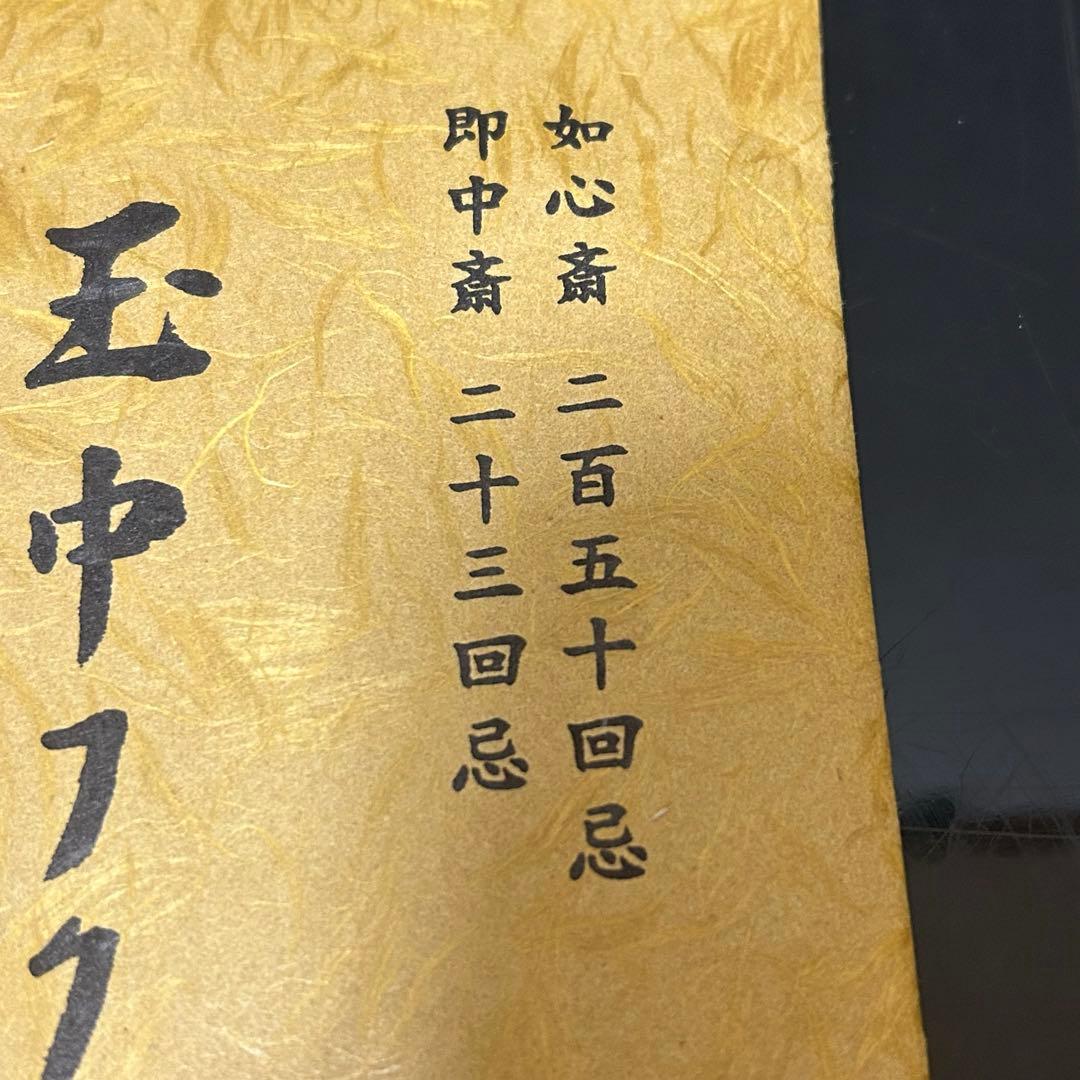 如心斎 二百五十回忌
即中斎 二十三回忌
玉中フク